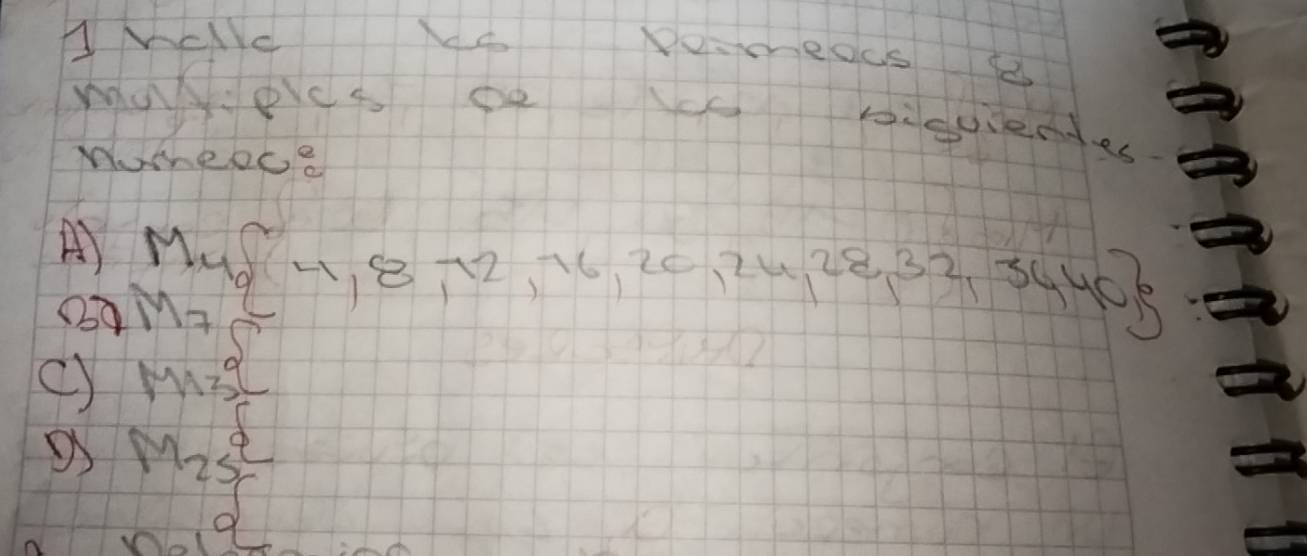 1 halle los primeros 8
multiplos de los siguientes
numeros:
A) M4 { 4, 8, 12, 16, 20, 24, 28, 32, 34, 40}
B) M7 {
C) M13 {
D) M25 {